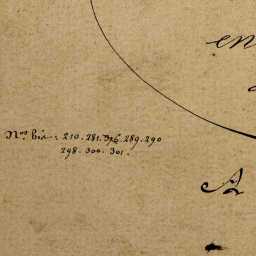 en
Nos bis : 210. 281. 316. 289. 290
298. 300. 301.
A